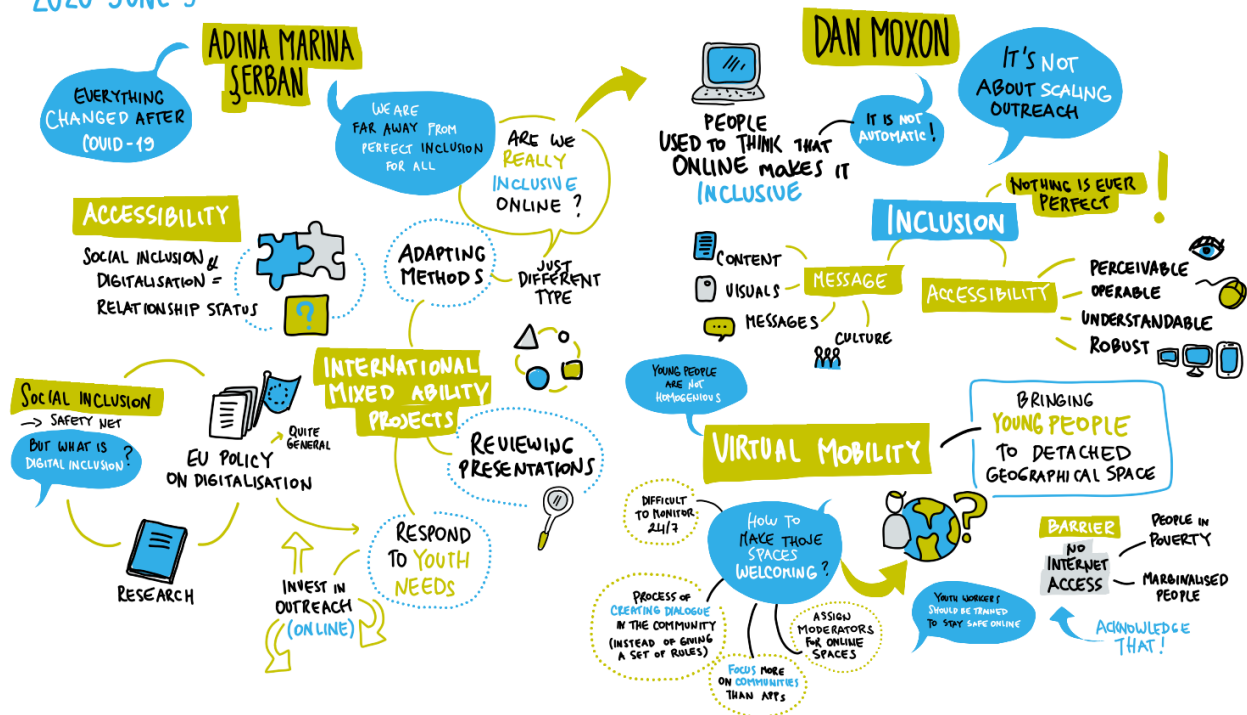 2020 JUNE
ADINA MARINA
ȘERBAN
EVERYTHING
CHANGED AFTER
COVID-19
WE ARE
FAR AWAY FROM
PERFECT INCLUSION
FOR ALL
ARE WE
REALLY
INCLUSIVE
ONLINE?
JUST
DIFFERENT
TYPE
ADAPTING
METHODS
ACCESSIBILITY
SOCIAL INCLUSION &
DIGITALISATION =
RELATIONSHIP STATUS
?
INTERNATIONAL
MIXED ABILITY
PROJECTS
SOCIAL INCLUSION
→ SAFETY NET
BUT WHAT IS
DIGITAL INCLUSION?
QUITE
GENERAL
EU POLICY
ON DIGITALISATION
RESEARCH
REVIEWING
PRESENTATIONS
RESPOND
TO YOUTH
NEEDS
INVEST IN
OUTREACH
(ONLINE)
DAN MOXON
PEOPLE
USED TO THINK THAT
ONLINE MAKES IT
INCLUSIVE
IT IS NOT
AUTOMATIC!
IT'S NOT
ABOUT SCALING
OUTREACH
NOTHING IS EVER
PERFECT
!
INCLUSION
MESSAGE
CONTENT
VISUALS
MESSAGES
CULTURE
ACCESSIBILITY
PERCEIVABLE
OPERABLE
UNDERSTANDABLE
ROBUST
YOUNG PEOPLE
ARE NOT
HOMOGENIOUS
VIRTUAL MOBILITY
BRINGING
YOUNG PEOPLE
TO DETACHED
GEOGRAPHICAL SPACE
?
DIFFICULT
TO MONITOR
24/7
HOW TO
MAKE THOSE
SPACES
WELCOMING?
PROCESS OF
CREATING DIALOGUE
IN THE COMMUNITY
(INSTEAD OF GIVING
A SET OF RULES)
FOCUS MORE
ON COMMUNITIES
THAN APPS
ASSIGN
MODERATORS
FOR ONLINE
SPACES
YOUTH WORKERS
SHOULD BE TRAINED
TO STAY SAFE ONLINE
BARRIER
NO
INTERNET
ACCESS
PEOPLE IN
POVERTY
MARGINALISED
PEOPLE
ACKNOWLEDGE
THAT!